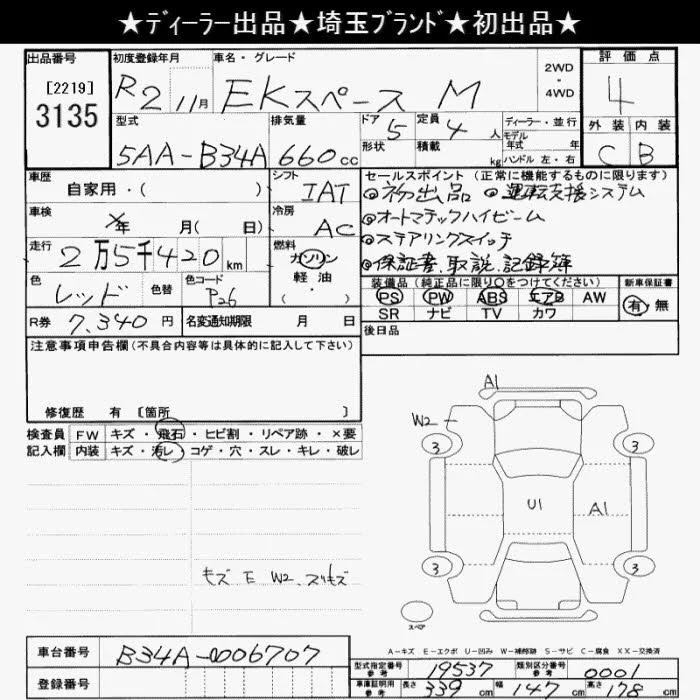 ★ディーラー出品★埼玉ブランド★初出品★
出品番号 初度登録年月 車名・グレード 2WD・4WD 評価点
[2219]
3135
R2 11月 EKスペース M 4
型式 排気量 ドア 5 定員 4 人 ディーラー・並行 外装 内装
形状 積載 kg モデル年式 年
ハンドル 左・右
5AA-B34A 660cc C B
車歴 シフト セールスポイント (正常に機能するものに限ります)
自家用・( ) IAT ◎初出品 ◎運転支援システム
車検 年 月( 日) 冷房 AC ◎オートマチックハイビーム
走行 2万5千420km 燃料 ガソリン ◎ステアリングスイッチ
軽油 ◎保証書、取説、記録簿
色 レッド 色替 色コード P26 ( ・ )
装備品 (純正品に限り○をつけてください) 新車保証書
PS PW ABS エアB AW 有・無
SR ナビ TV カワ
R券 7,340 円 名変通知期限 月 日 後日品
注意事項申告欄(不具合内容等は具体的に記入して下さい)
修復歴 有 [箇所 ]
検査員 FW キズ・飛石・ヒビ割・リペア跡・×要
記入欄 内装 キズ・汚レ・コゲ・穴・スレ・キレ・破レ
A1
W2
3 3
U1 A1
3 3
スペア
A-キズ E-エクボ U-凹み W-補修跡 S-サビ C-腐食 XX-交換済
車台番号 B34A-0006707
登録番号
型式指定番号 参考 19537 類別区分番号 参考 0001
車庫証明用 参考 長さ 339 cm 幅 147 cm 高さ 178 cm